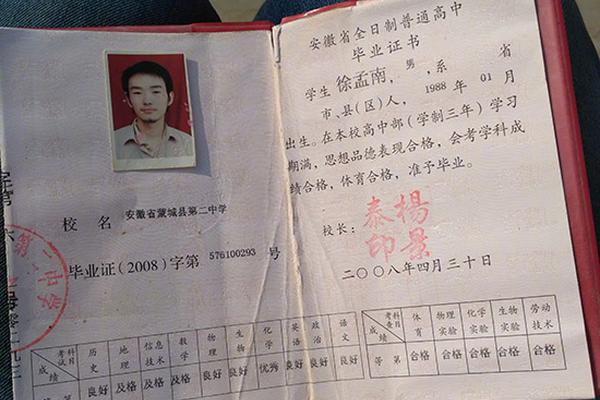 校名 安徽省蒙城县第二中学
毕业证(2008)字第 576100293 号
考试科目 历史 地理 信息技术 数学 物理 生物 化学 英语 政治 语文
成绩 良好 及格 及格 及格 良好 良好 优秀 良好 良好 良好
安徽省全日制普通高中
毕业证书
学生 徐孟南,男,系 省
市、县(区)人,1988年01月
出生。在本校高中部(学制三年)学习
期满,思想品德表现合格,会考学科成
绩合格,体育合格,准予毕业。
校长: 杨景泰印
二〇〇八年四月三十日
考查科目 体育 物理实验 化学实验 生物实验 劳动技术
成绩
等第 合格 合格 合格 合格 合格